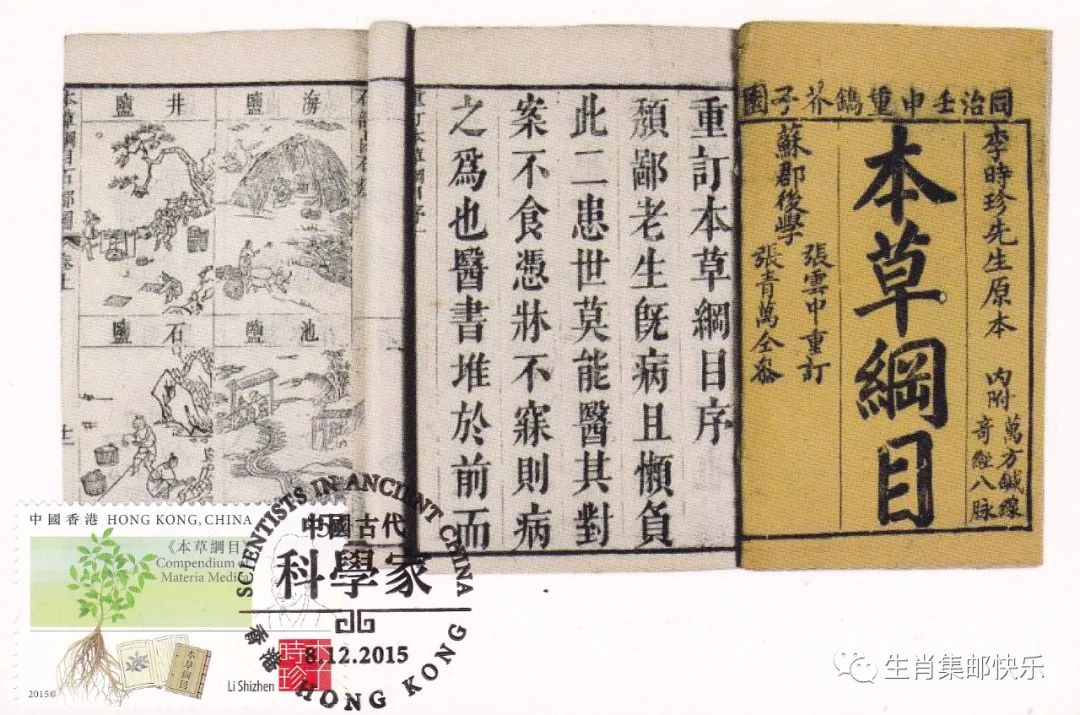 同治壬申重鐫芥子園
李時珍先生原本
內附
萬方鍼線
奇經八脉
本草綱目
蘇郡後學
張雲中重訂
張青萬仝參
重訂本草綱目序
頹鄙老生旣病且懶負
此二患世莫能醫其對
案不食憑牀不寐則病
之爲也醫書堆於前而
海鹽
井鹽
池鹽
石鹽
中國香港 HONG KONG, CHINA
《本草綱目》
Compendium
Materia Medica
本草綱目
2015©
Li Shizhen
時珍
SCIENTISTS IN ANCIENT CHINA
中國古代
科學家
8.12.2015
香港 HONG KONG
生肖集邮快乐